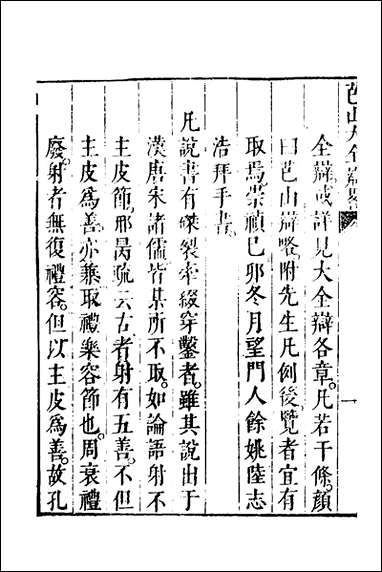 芭山大全辯畧
一
全辯或詳見大全辯各章凡若干條顏
曰芭山辯畧附先生凡例後覽者宜有
取焉崇禎己卯冬月望門人餘姚陸志
浩拜手書
凡說書有磔裂牽綴穿鑿者雖其說出于
漢唐宋諸儒皆某所不取如論語射不
主皮節邢昺疏云古者射有五善不但
主皮爲善亦兼取禮樂容節也周衰禮
廢射者無復禮容但以主皮爲善故孔